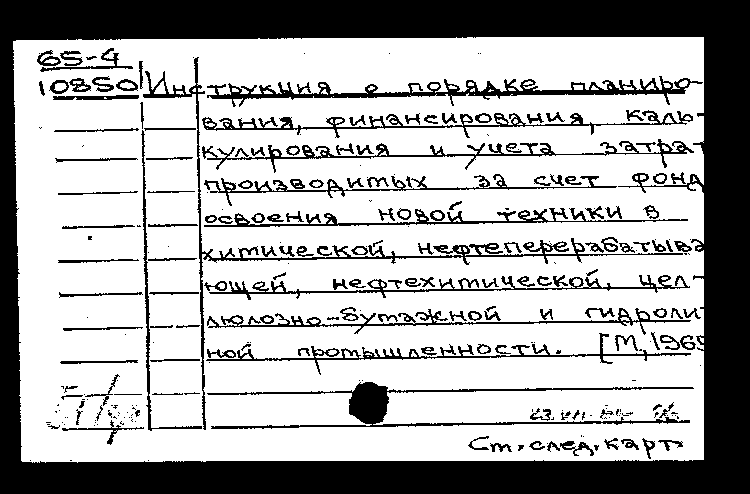 65-4
10850 Инструкция о порядке планиро-
вания, финансирования, каль-
кулирования и учета затрат
производимых за счет фонд
освоения новой техники в
химической, нефтеперерабатыва
ющей, нефтехимической, цел-
люлозно-бумажной и гидроли
ной промышленности. [М, 1965
Ст. след. карт.